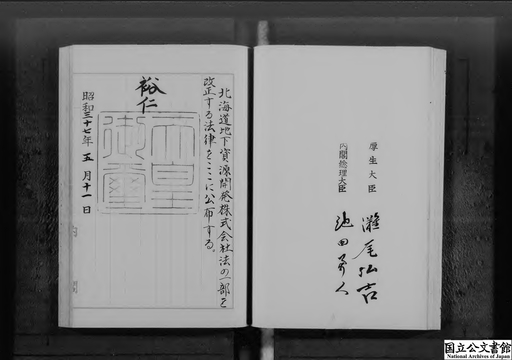 北海道地下資源開発株式会社法の一部を
改正する法律をここに公布する。
裕仁
天皇御璽
昭和三十七年五月十一日
厚生大臣
灘尾弘吉
内閣総理大臣
池田勇人
国立公文書館
National Archives of Japan